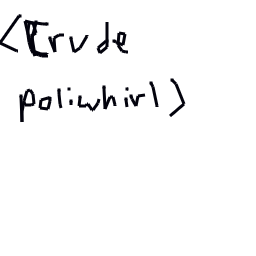 <Crude
poliwhirl>